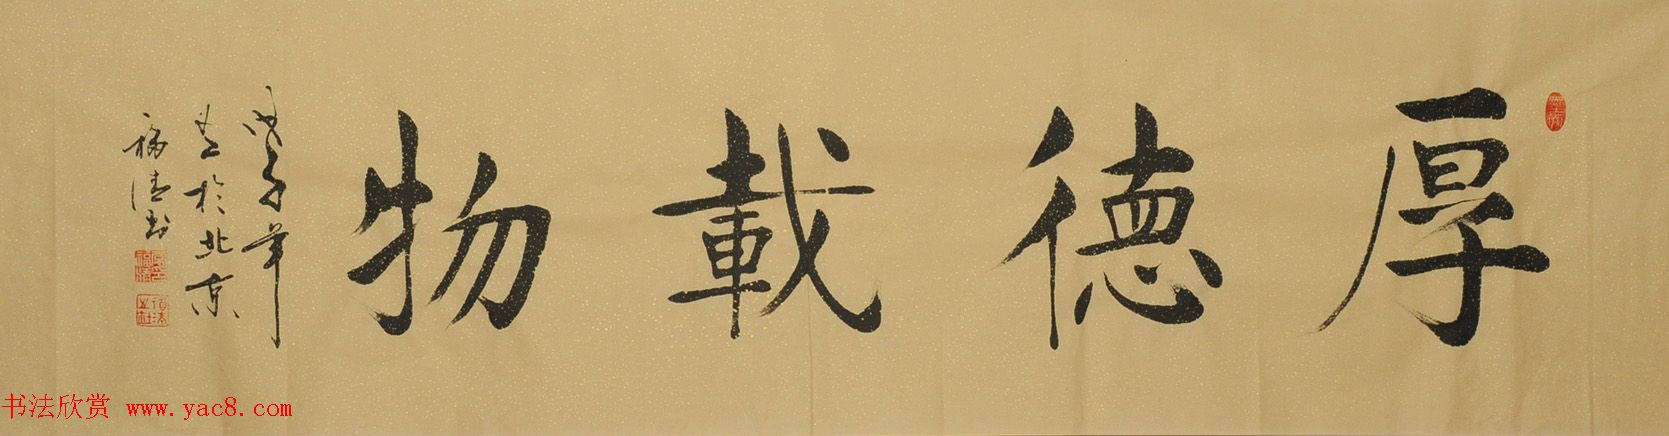 厚德載物
戊子年
春於北京
福清书
书法欣赏 www.yac8.com